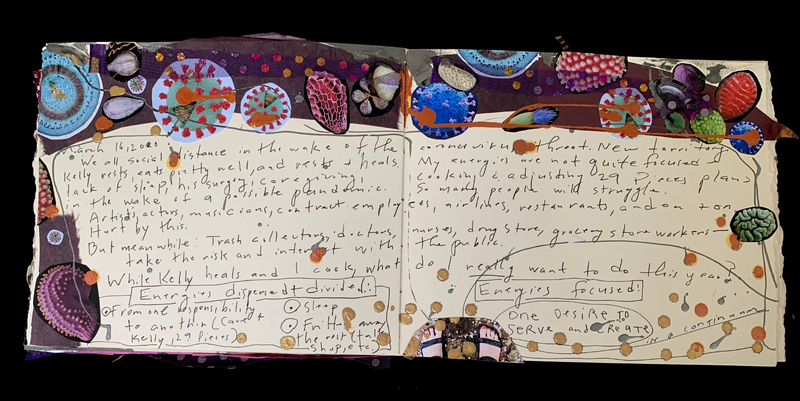 March 16, 2020
We all social distance in the wake of the coronavirus threat. New territory
Kelly rests, eats pretty well, and rests & heals. My energies are not quite focused
lack of sleep, his surgery, caregiving, cooking & adjusting 29 Pieces plans
in the wake of a possible pandemic. So many people will struggle.
Artists, actors, musicians, contract employees, airlines, restaurants, and on & on
Hurt by this.
But meanwhile: Trash collectors, doctors, nurses, drug store, grocery store workers—
take the risk and interact with the public.
While Kelly heals and I cook, what do I really want to do this year?
Energies dispersed + divided:
From one responsibility
to another (Caret
Kelly, 29 Pieces)
Sleep
Fritter away
the rest (
shop, etc.)
Energies focused:
ONE DESIRE TO
SERVE and CREATE
in a continuum